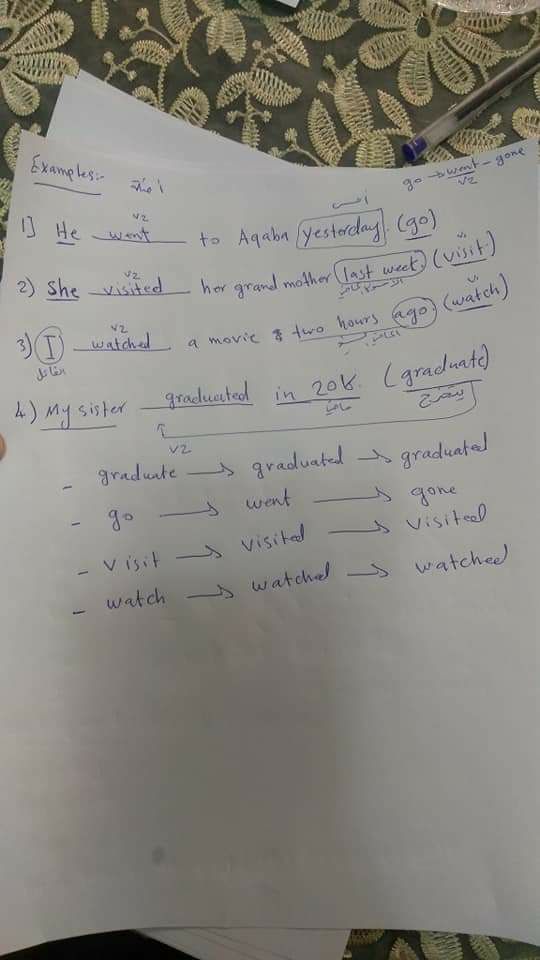 Examples:-
go → went - gone
V2
أمس
V2
1] He went to Aqaba yesterday. (go)
V2
2) She visited her grand mother last week. (visit)
V2
3) I watched a movie two hours ago. (watch)
الفاعل
4) My sister graduated in 201 (graduate)
ماضي يتخرج
V2
- graduate → graduated → graduated
- go → went → gone
- visit → visited → visited
- watch → watched → watched